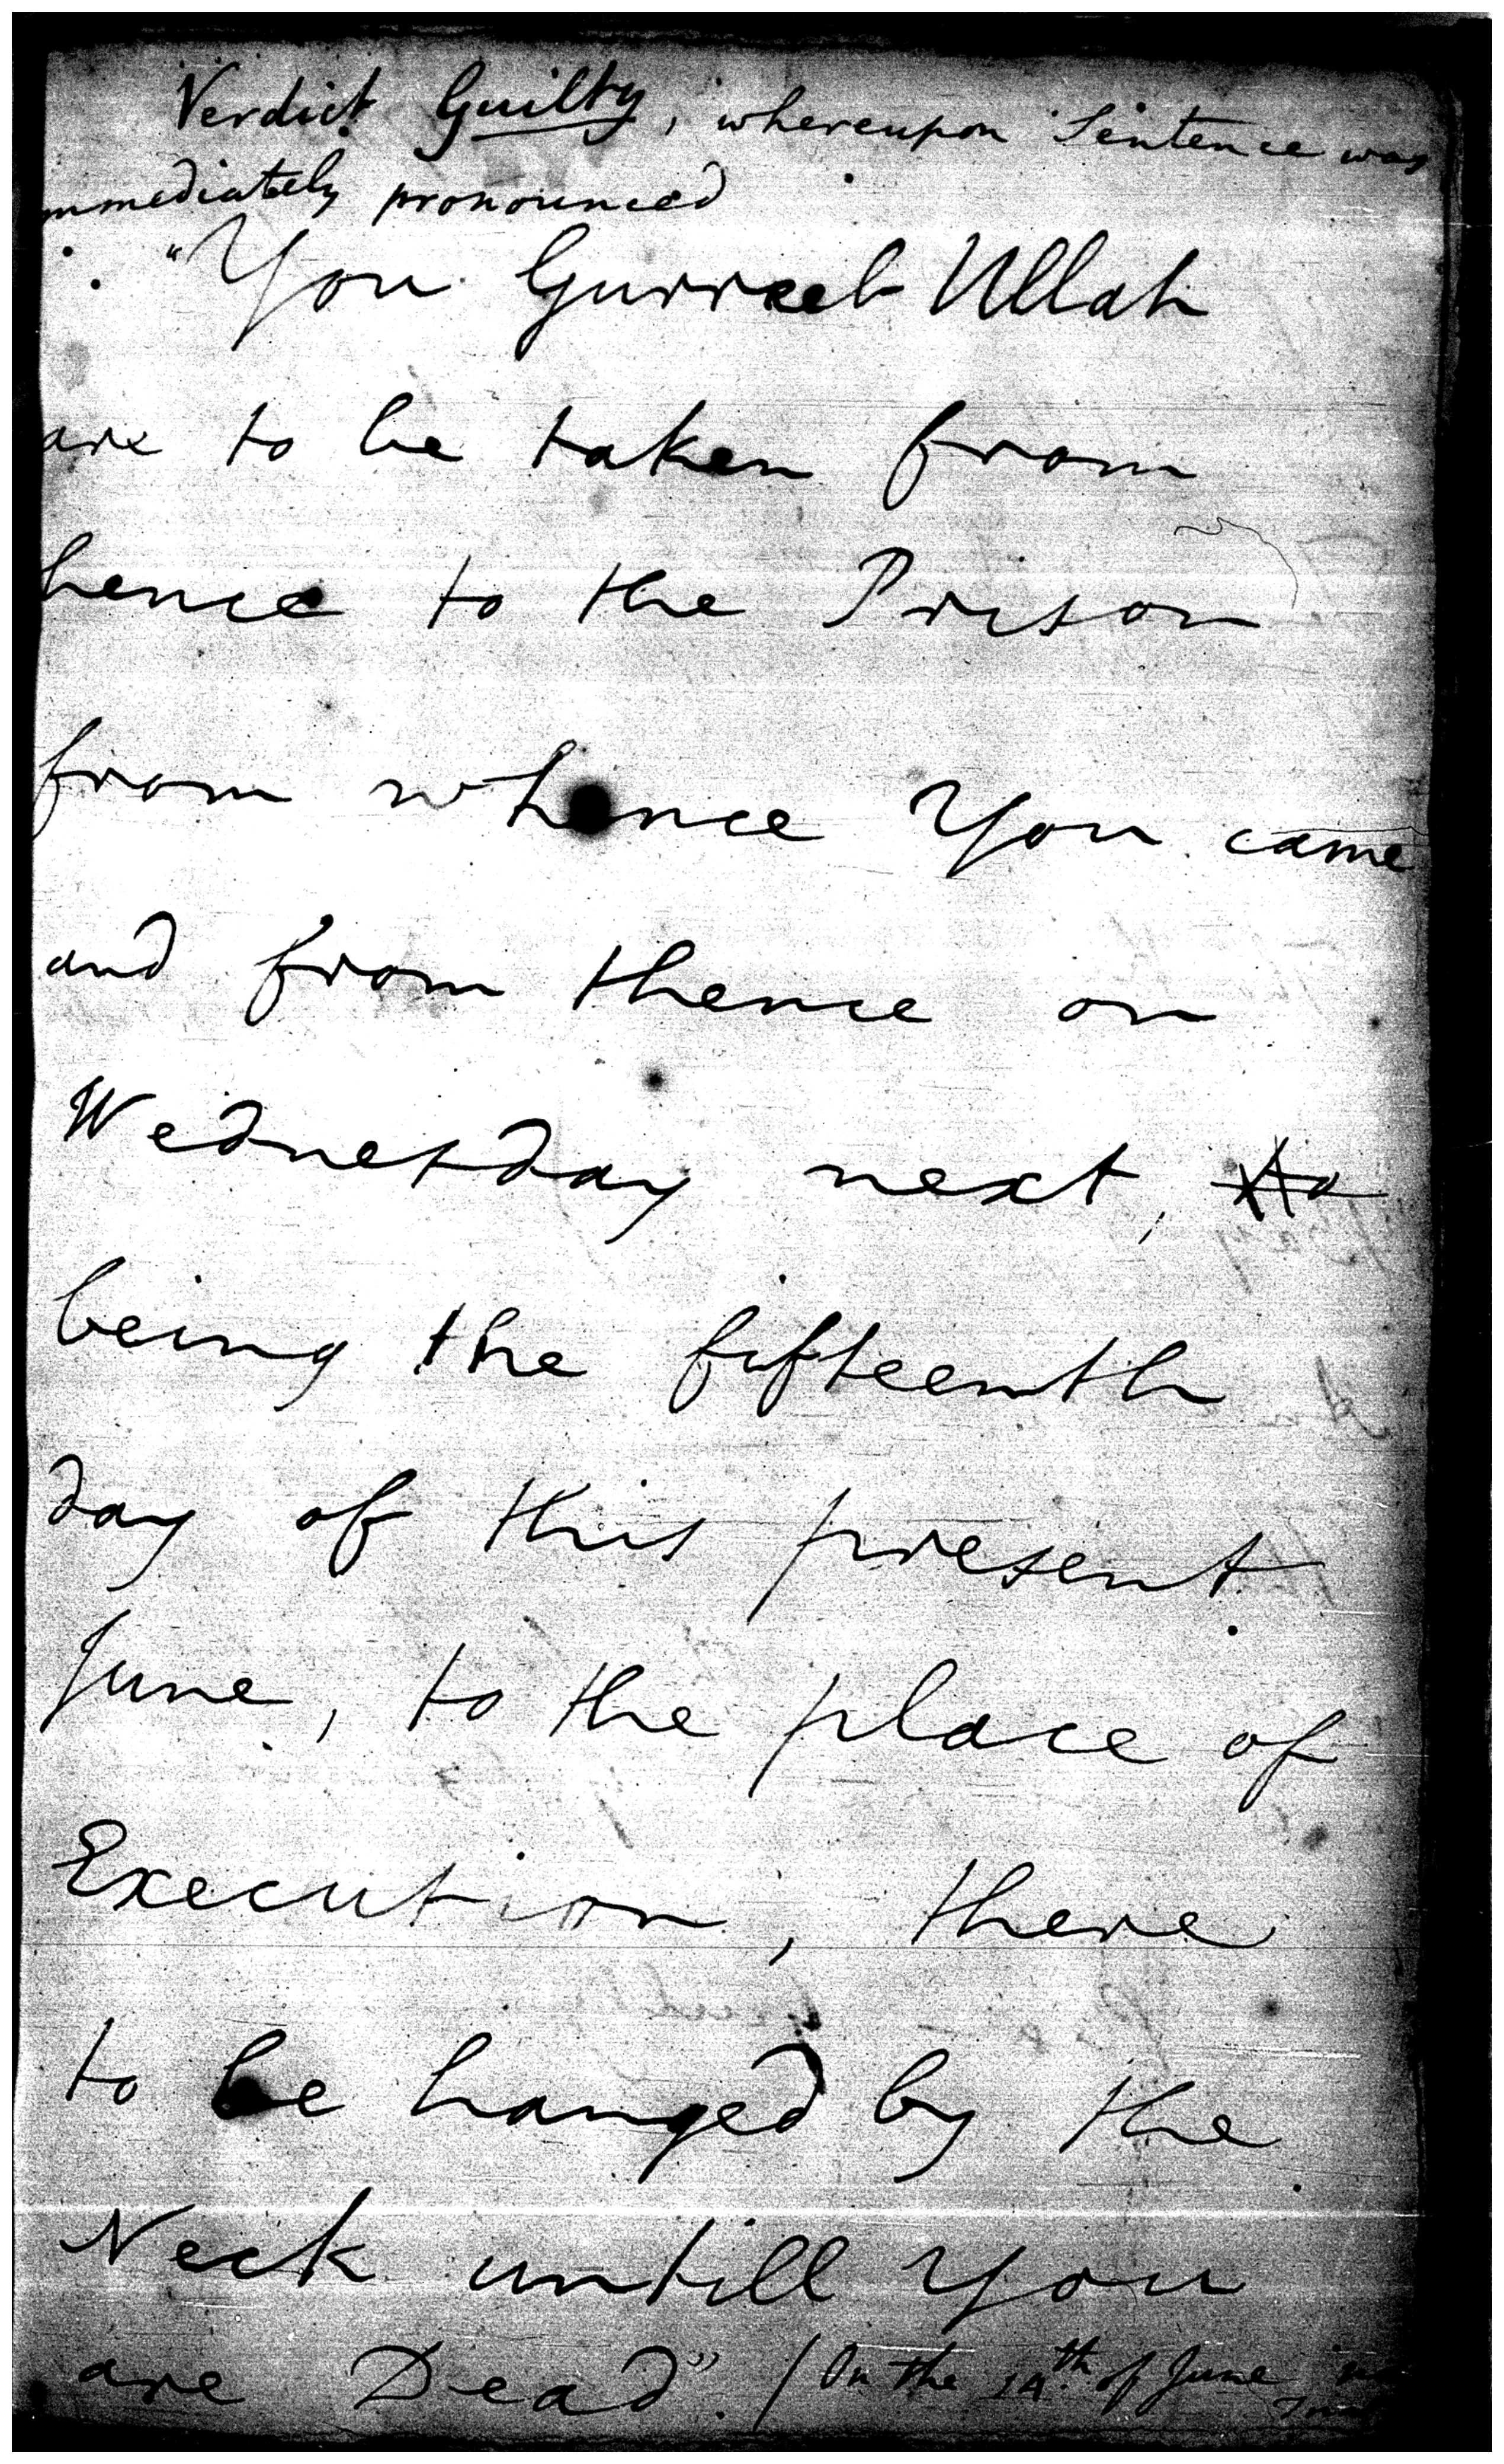 Verdict Guilty, whereupon Sentence was
immediately pronounced
"You Gurreeb Ullah
are to be taken from
hence to the Prison
from whence You came
and from thence on
Wednesday next,
being the fifteenth
day of this present
June, to the place of
Execution, there
to be hanged by the
Neck untill You
are Dead". / On the 14th of June